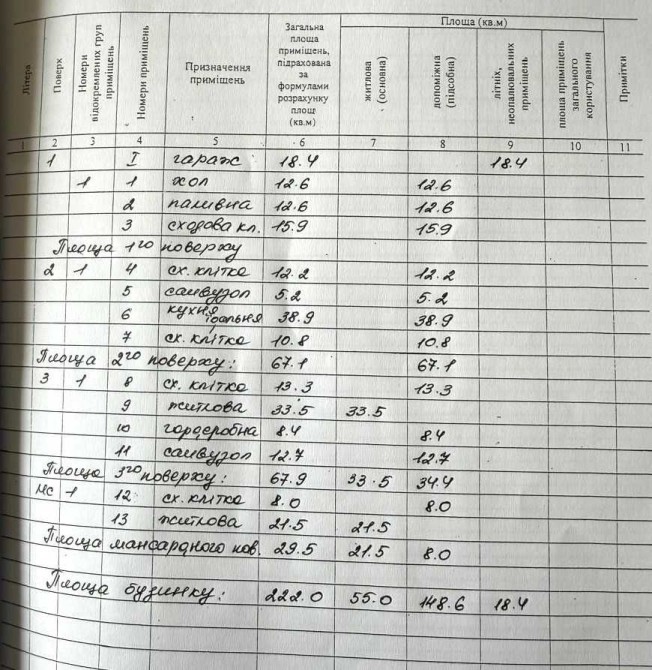 Літера
Поверх
Номери відокремлених груп приміщень
Номери приміщень
Призначення приміщень
Загальна площа приміщень, підрахована за формулами розрахунку площ (кв.м)
Площа (кв.м)
житлова (основна)
допоміжна (підсобна)
літніх, неопалювальних приміщень
площа приміщень загального користування
Примітки
1 2 3 4 5 6 7 8 9 10 11
1 I гараж 18.4 18.4
1 1 хол 12.6 12.6
2 паливна 12.6 12.6
3 сходова кл. 15.9 15.9
Площа 1го поверху
2 1 4 сх. клітка 12.2 12.2
5 санвузол 5.2 5.2
6 кухня, їдальня 38.9 38.9
7 сх. клітка 10.8 10.8
Площа 2го поверху: 67.1 67.1
3 1 8 сх. клітка 13.3 13.3
9 житлова 33.5 33.5
10 гардеробна 8.4 8.4
11 санвузол 12.7 12.7
Площа 3го поверху: 67.9 33.5 34.4
мс 1 12 сх. клітка 8.0 8.0
13 житлова 21.5 21.5
Площа мансардного пов. 29.5 21.5 8.0
Площа будинку: 222.0 55.0 148.6 18.4